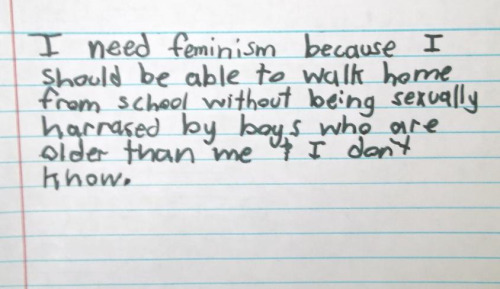 I need feminism because I
should be able to walk home
from school without being sexually
harrased by boys who are
older than me + I don't
know.